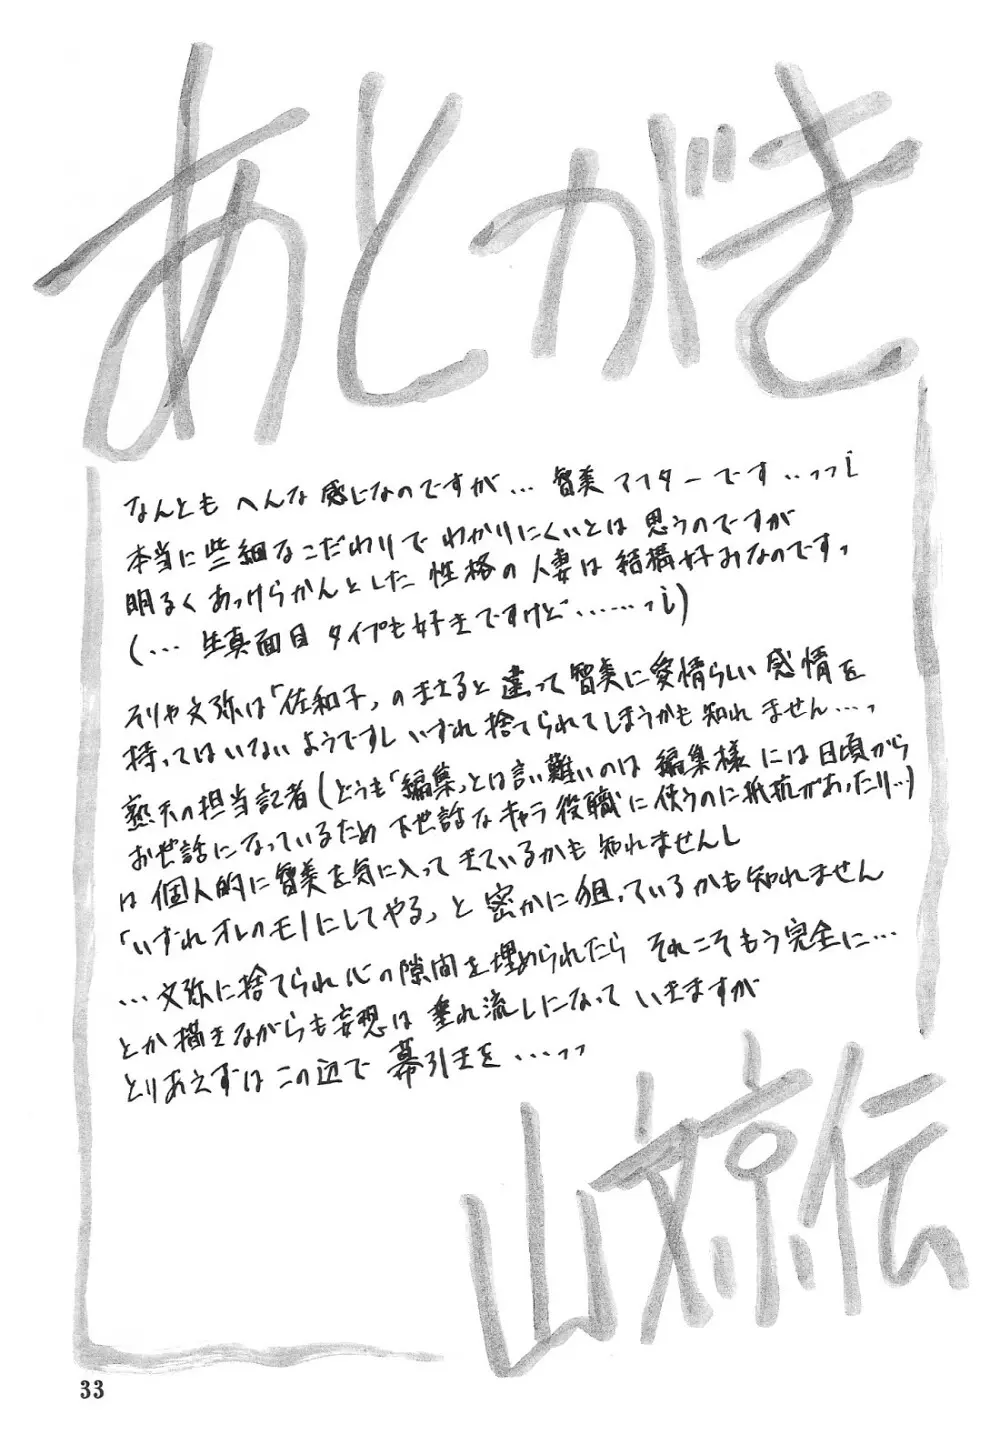 あとがき
なんともへんな感じなのですが… 智美アフターです‥っっi
本当に些細なこだわりでわかりにくいとは思うのですが
明るくあっけらかんとした性格の人妻は結構好みなのです、
(… 生真面目タイプも好きですけど……っi)
そりゃ文弥は「佐和子」のまさると違って智美に愛情らしい感情を
持ってはいないようですし いずれ捨てられてしまうかも知れません…、
熟天の担当記者(どうも「編集」とは言い難いのは編集様には日頃から
お世話になっているため下世話なキャラ役職に使うのに抵抗があったり…)
は個人的に智美を気に入ってきているかも知れませんし
「いずれオレのモノにしてやる」と密かに狙っているかも知れません
…文弥に捨てられ心の隙間を埋められたら それこそもう完全に…
とか描きながらも妄想は垂れ流しになって いきますが
とりあえずはこの辺で 幕引きを…っっ
山文京伝
33